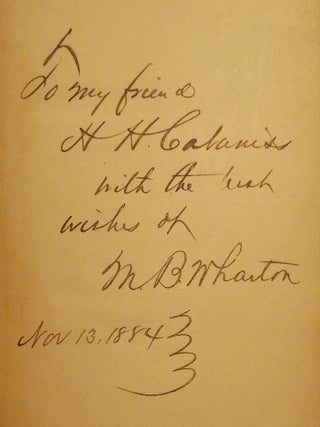 To my friend
H. H. Cabaniss
with the best
wishes of
M. B. Wharton
Nov 13, 1884